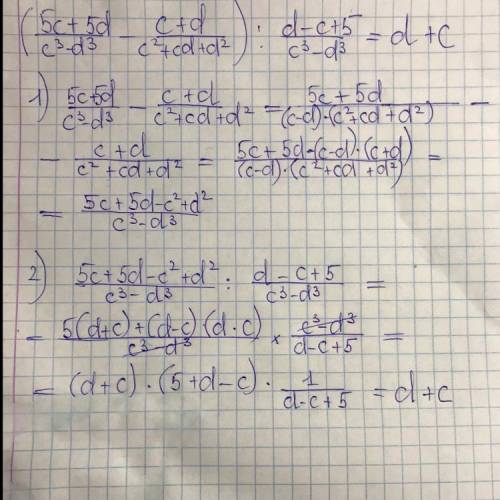 (5c+5d/c³-d³ - c+d/c²+cd+d²) : d-c+5/c³-d³ = d+c
1) 5c+5d/c³-d³ - c+d/c²+cd+d² = 5c+5d/(c-d)·(c²+cd+d²) -
- c+d/c²+cd+d² = 5c+5d-(c-d)·(c+d)/(c-d)·(c²+cd+d²) =
= 5c+5d-c²+d²/c³-d³
2) 5c+5d-c²+d²/c³-d³ : d-c+5/c³-d³ =
= 5(d+c)+(d-c)(d·c)/c³-d³ × c³-d³/d-c+5 =
= (d+c)·(5+d-c)·1/d-c+5 = d+c